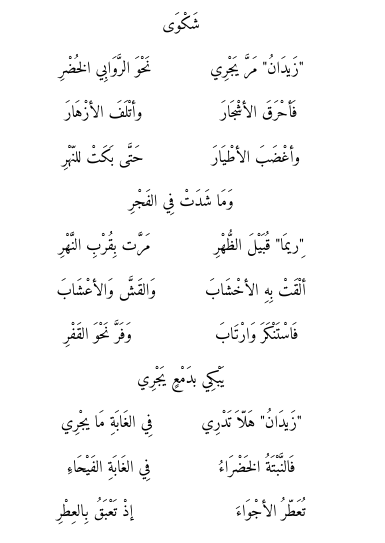 شَكْوَى
"زَيدَانُ" مَرَّ يَجْرِي نَحْوَ الرَّوَابِي الخُضْرِ
فَأحْرَقَ الأشْجَارَ وأتْلَفَ الأزْهَارَ
وأغْضَبَ الأطْيَارَ حَتَّى بَكَتْ للنّهْرِ
وَمَا شَدَتْ فِي الفَجْرِ
"رِيمَا" قُبَيْلَ الظُّهْرِ مَرَّت بِقُرْبِ النَّهْرِ
ألْقَتْ بِهِ الأخْشَابَ وَالقَشَّ وَالأعْشَابَ
فَاسْتَنْكَرَ وَارْتَابَ وَفَرَّ نَحْوَ القَفْرِ
يَبْكِي بدَمْعٍ يَجْرِي
"زَيَدَانُ" هَلاَّ تَدْرِي فِي الغَابَةِ مَا يجْرِي
فَالنَّبْتَةُ الخَضْرَاءُ فِي الغَابَةِ الفَيْحَاءِ
تُعَطّرُ الأجْوَاءَ إذْ تَعْبَقُ بِالعِطْرِ